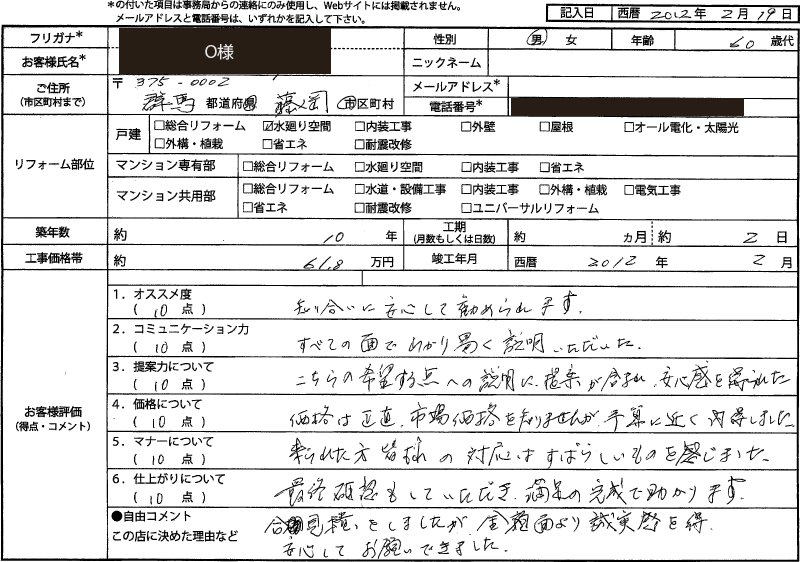 *の付いた項目は事務局からの連絡にのみ使用し、Webサイトには掲載されません。
メールアドレスと電話番号は、いずれかを記入して下さい。
記入日 西暦 2012年 2月 19日
フリガナ* O様 性別 男 女 年齢 60歳代
お客様氏名* ニックネーム
ご住所 〒375-0002 メールアドレス*
(市区町村まで) 群馬 都道府県 藤岡 市区町村 電話番号*
リフォーム部位
戸建 □総合リフォーム ☑水廻り空間 □内装工事 □外壁 □屋根 □オール電化・太陽光
□外構・植栽 □省エネ □耐震改修
マンション専有部 □総合リフォーム □水廻り空間 □内装工事 □省エネ
マンション共用部 □総合リフォーム □水道・設備工事 □内装工事 □外構・植栽 □電気工事
□省エネ □耐震改修 □ユニバーサルリフォーム
築年数 約 10 年 工期 (月数もしくは日数) 約 カ月 約 2 日
工事価格帯 約 61.8 万円 竣工年月 西暦 2012 年 2 月
お客様評価
(得点・コメント)
1．オススメ度
( 10 点 ) 知り合いに安心して勧められます。
2．コミュニケーション力
( 10 点 ) すべての面でわかり易く説明いただいた。
3．提案力について
( 10 点 ) こちらの希望する点への説明に、提案が含まれ、安心感を得られた
4．価格について
( 10 点 ) 価格は正直、市場価格を知りませんが、予算に近く納得しました
5．マナーについて
( 10 点 ) 来られた方皆様の対応はすばらしいものを感じました。
6．仕上がりについて
( 10 点 ) 最終確認もしていただき、満足の完成で助かります。
●自由コメント
この店に決めた理由など
見積いをしましたが 全面より誠実感を得、
安心してお願いできました。